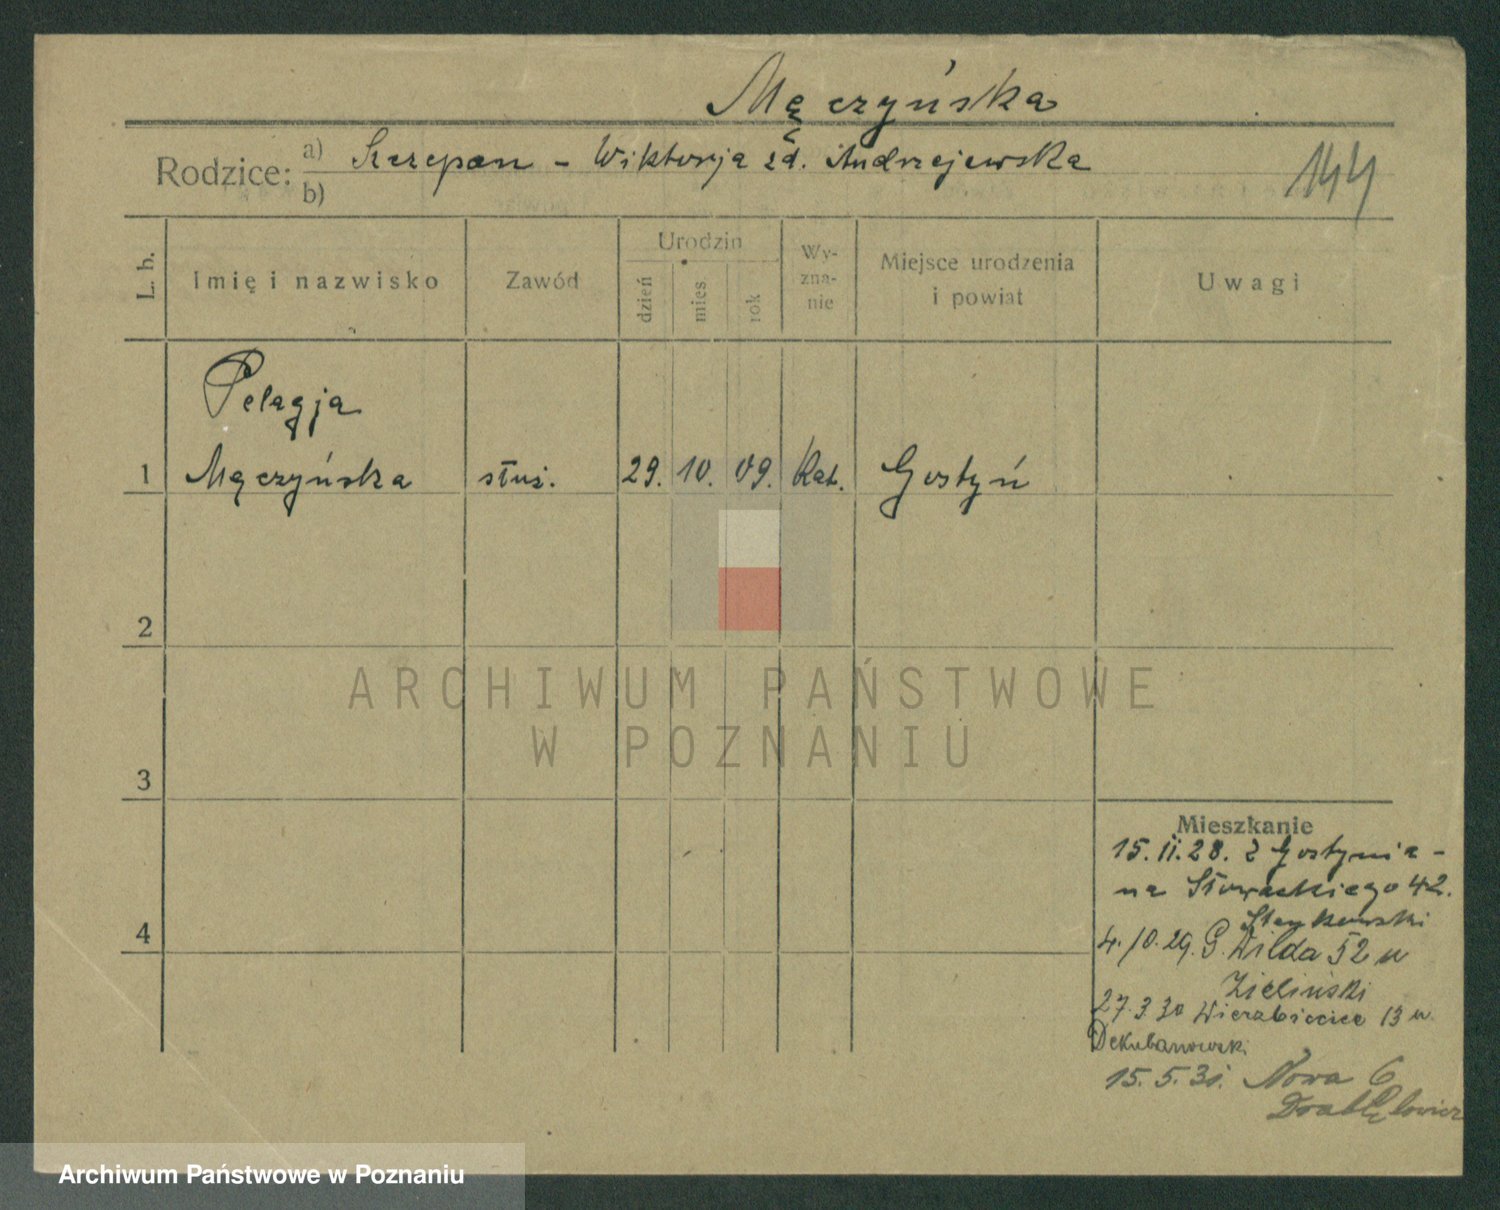 Mączyńska
Rodzice: a) Szczepan - Wiktorja zd. Andrzejewska
b)
144
L. b.
Imię i nazwisko
Zawód
Urodzin
dzień
mies
rok
Wy-
zna-
nie
Miejsce urodzenia
i powiat
Uwagi
Pelagja
1 Mączyńska służ. 29. 10. 09. Kat. Gostyń
2
ARCHIWUM PAŃSTWOWE
W POZNANIU
3
Mieszkanie
15.II.28. z Gostynia -
na Słowackiego 42.
4
4.10.29. G. Wilda 52 u
Zieliński
27.3.30 Wierzbięcice 13 u
15.5.31. Nowa 6
Archiwum Państwowe w Poznaniu